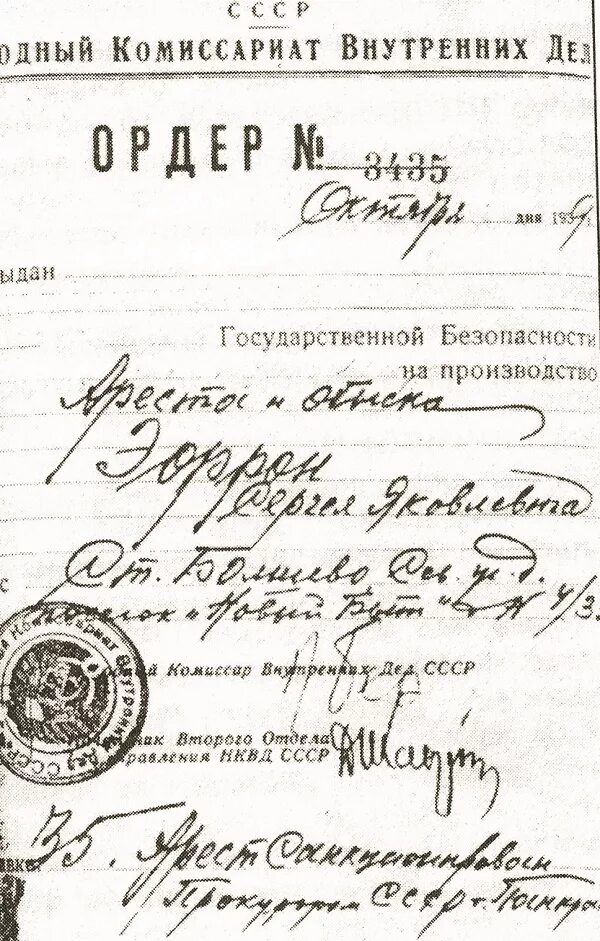 СССР
одный Комиссариат Внутренних Дел
ОРДЕР № 3435
Октября дня 1939 г.
ыдан
Государственной Безопасности
на производство
Ареста и обыска
Эфрон
Сергея Яковлевича
с
Ст. Болшево Сев. ж. д.
поселок "Новый Быт" 4/3.
ый Комиссар Внутренних Дел СССР
ник Второго Отдела
правления НКВД СССР
Комиссариат Внутренних Дел СССР
вке. 35. Арест Санкционирован
Прокурором СССР т. Панкра